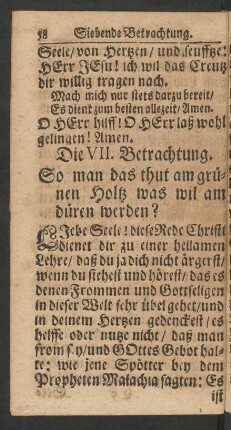 58 Siebende Betrachtung.
Seele/ von Hertzen/ und seufftze:
HErr JEsu! ich wil das Creutz
dir willig tragen nach.
Mach mich nur stets darzu bereit/
Es dient zum besten allezeit/ Amen.
O HErr hilff! O HErr laß wohl
gelingen! Amen.
Die VII. Betrachtung.
So man das thut am grü-
nen Holtz was wil am
düren werden?
LJebe Seele! diese Rede Christi
dienet dir zu einer heilamen
Lehre/ daß du ja dich nicht ärgerst/
wenn du siehest und hörest/ das es
denen Frommen und Gottseligen
in dieser Welt sehr übel gehet/ und
in deinem Hertzen gedenckest/ es
helffe oder nutze nicht/ daß man
from sey/ und GOttes Gebot hal-
te: wie jene Spötter bey dem
Propheten Malachia sagten: Es
ist